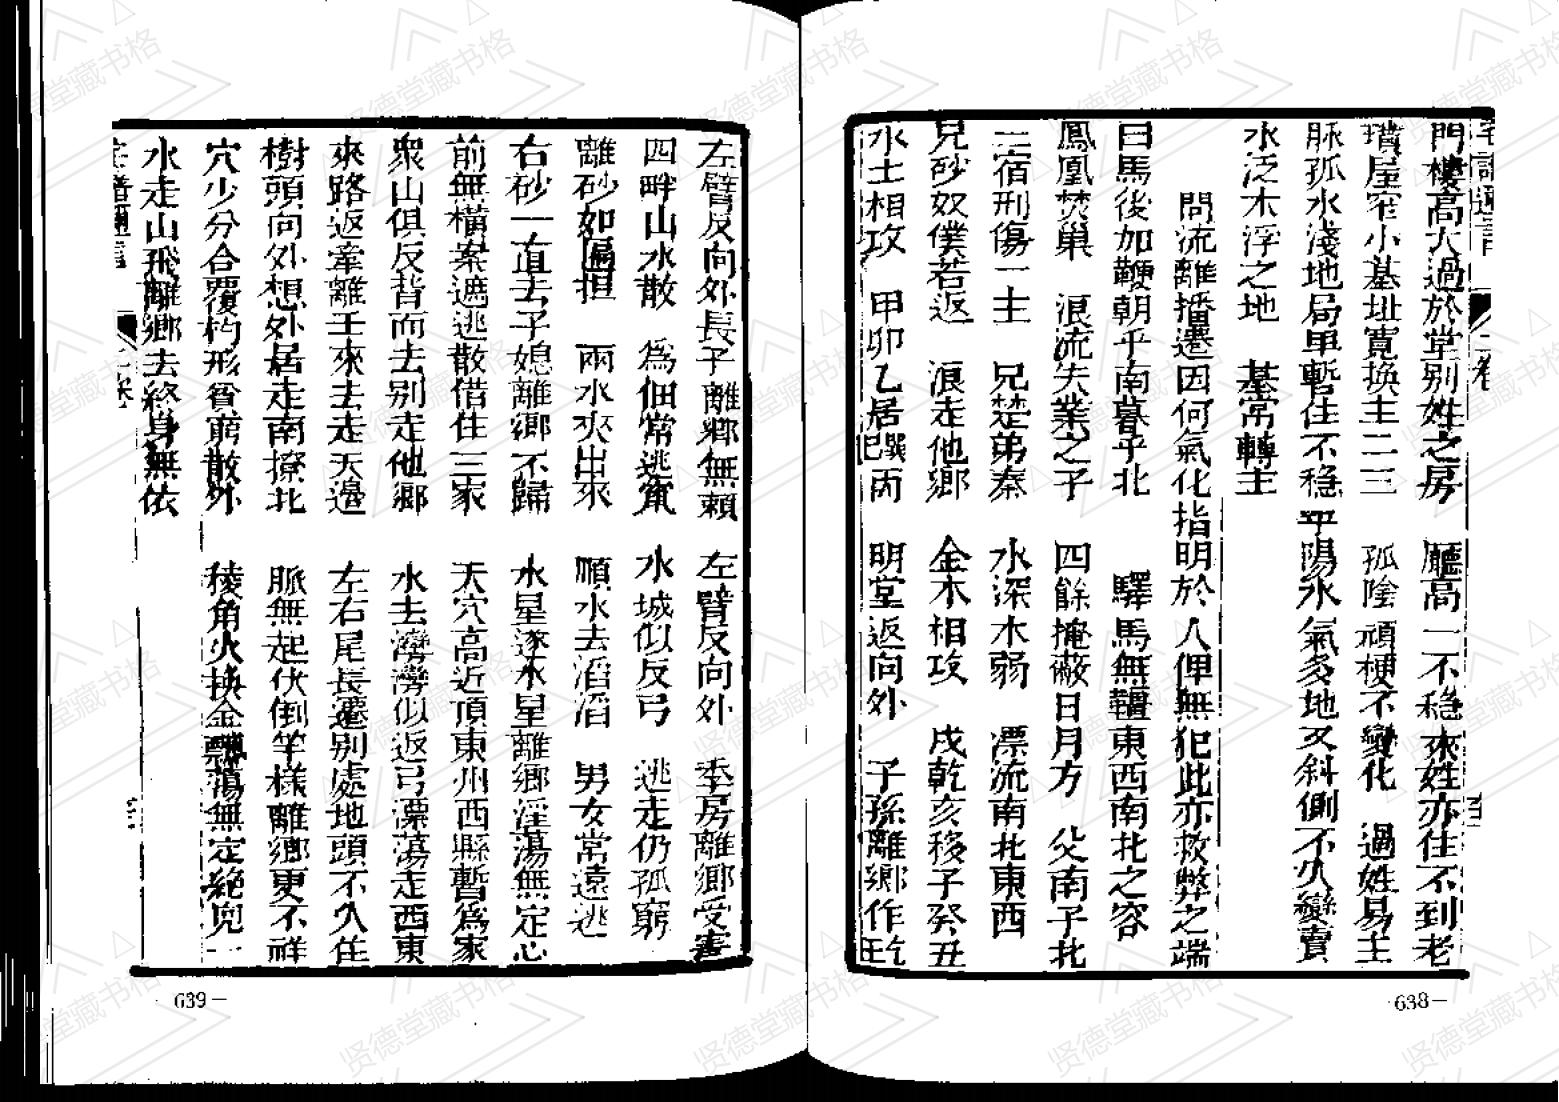 門樓高大過於堂別姓之房　廳高一不穩來姓亦住不到老
璜屋窄小基址寬換主二三　孤陰頑梗不變化　過姓易主
脉孤水淺地局單暫住不穩平陽水氣多地又斜側不久變賣
水泛木浮之地　基常轉主
問流離播遷因何氣化指明於人俾無犯此亦救弊之端
曰馬後加鞭朝乎南暮乎北　驛馬無韁東西南北之客
鳳凰焚巢　浪流失業之子　四餘掩蔽日月方　父南子北
二宿刑傷一主　兄楚弟秦　水深木弱　漂流南北東西
兄砂奴僕若返　浪走他鄉　金木相攻　戌乾亥移子癸丑
水土相攻　甲卯乙居巽巳丙　明堂返向外　子孫離鄉作乞
638
左臂反向外長子離鄉無賴　左臂反向外　季房離鄉受害
四畔山水散　為佃常逃竄　水城似反弓　逃走仍孤窮
離砂如匾担　兩水夾出來　順水去滔滔　男女常遠逃
右砂一直去子媳離鄉不歸　水星逐水星離鄉淫蕩無定心
前無橫案遮逃散借住三家　天穴高近頂東州西縣暫為家
衆山俱反背而去別走他鄉　水去灣灣似返弓漂蕩走西東
來路返牽離壬來去走天邊　左右尾長遷別處地頭不久住
樹頭向外想外居走南撩北　脈無起伏倒竿樣離鄉更不祥
穴少分合覆杓形貧窮散外　稜角火挾金飄蕩無定絕兜一
水走山飛離鄉去終身無依
639